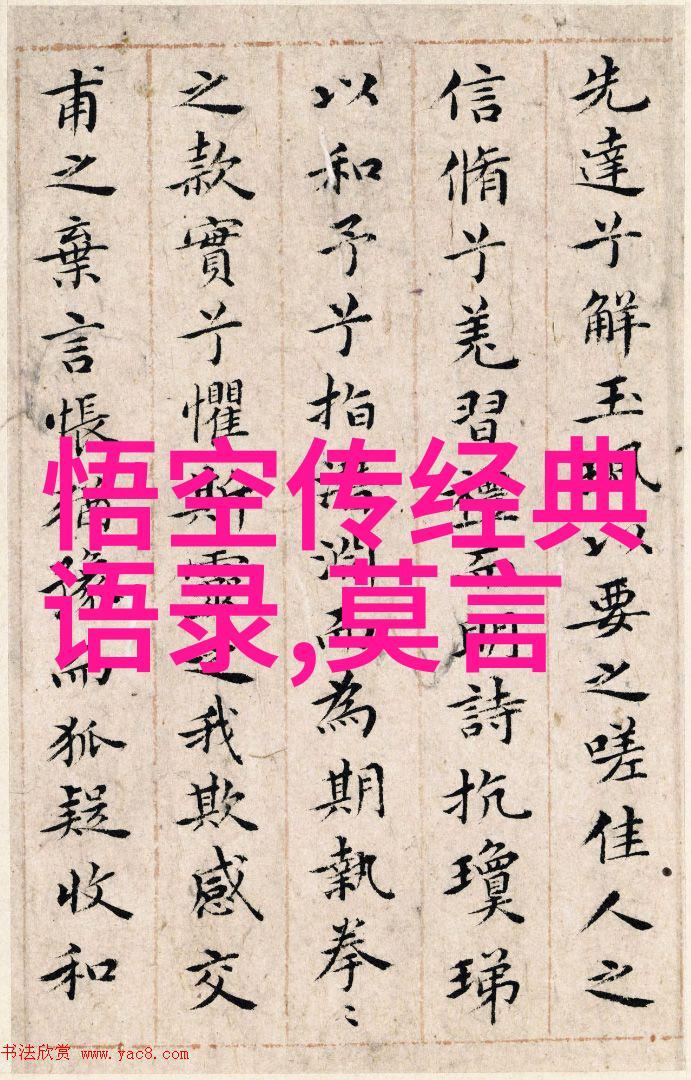 先達兮解玉珮以要之嗟佳人之
信脩兮羌習禮而明詩抗瓊珶
以和予兮指潛淵而為期執拳〻
之款實兮懼斯靈之我欺感交
甫之棄言悵猶豫而狐疑收和
悟空传经典
语录,莫言
书法欣赏 www.yac8.com